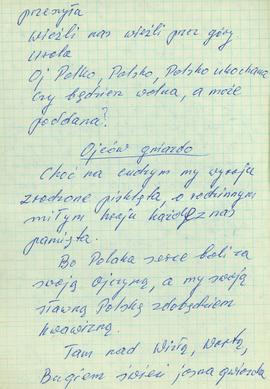 przeszyła
Wieźli nas wieźli przez góry
Urala
Oj Polko, Polsko, Polsko ukochana
Czy będziesz wolna, a może
poddana?
Ojców gniazdo
Choć na cudzym my wyraju
zrodzone pisklęta, o rodzinnym
miłym kraju każdy z nas
pamięta.
Bo Polaka serce boli za
swoją ojczyznę, a my swoją
sławną Polskę zdobędziem
krwawizną.
Tam nad Wisłą, Wartą,
Bugiem świeci jasna gwiazda